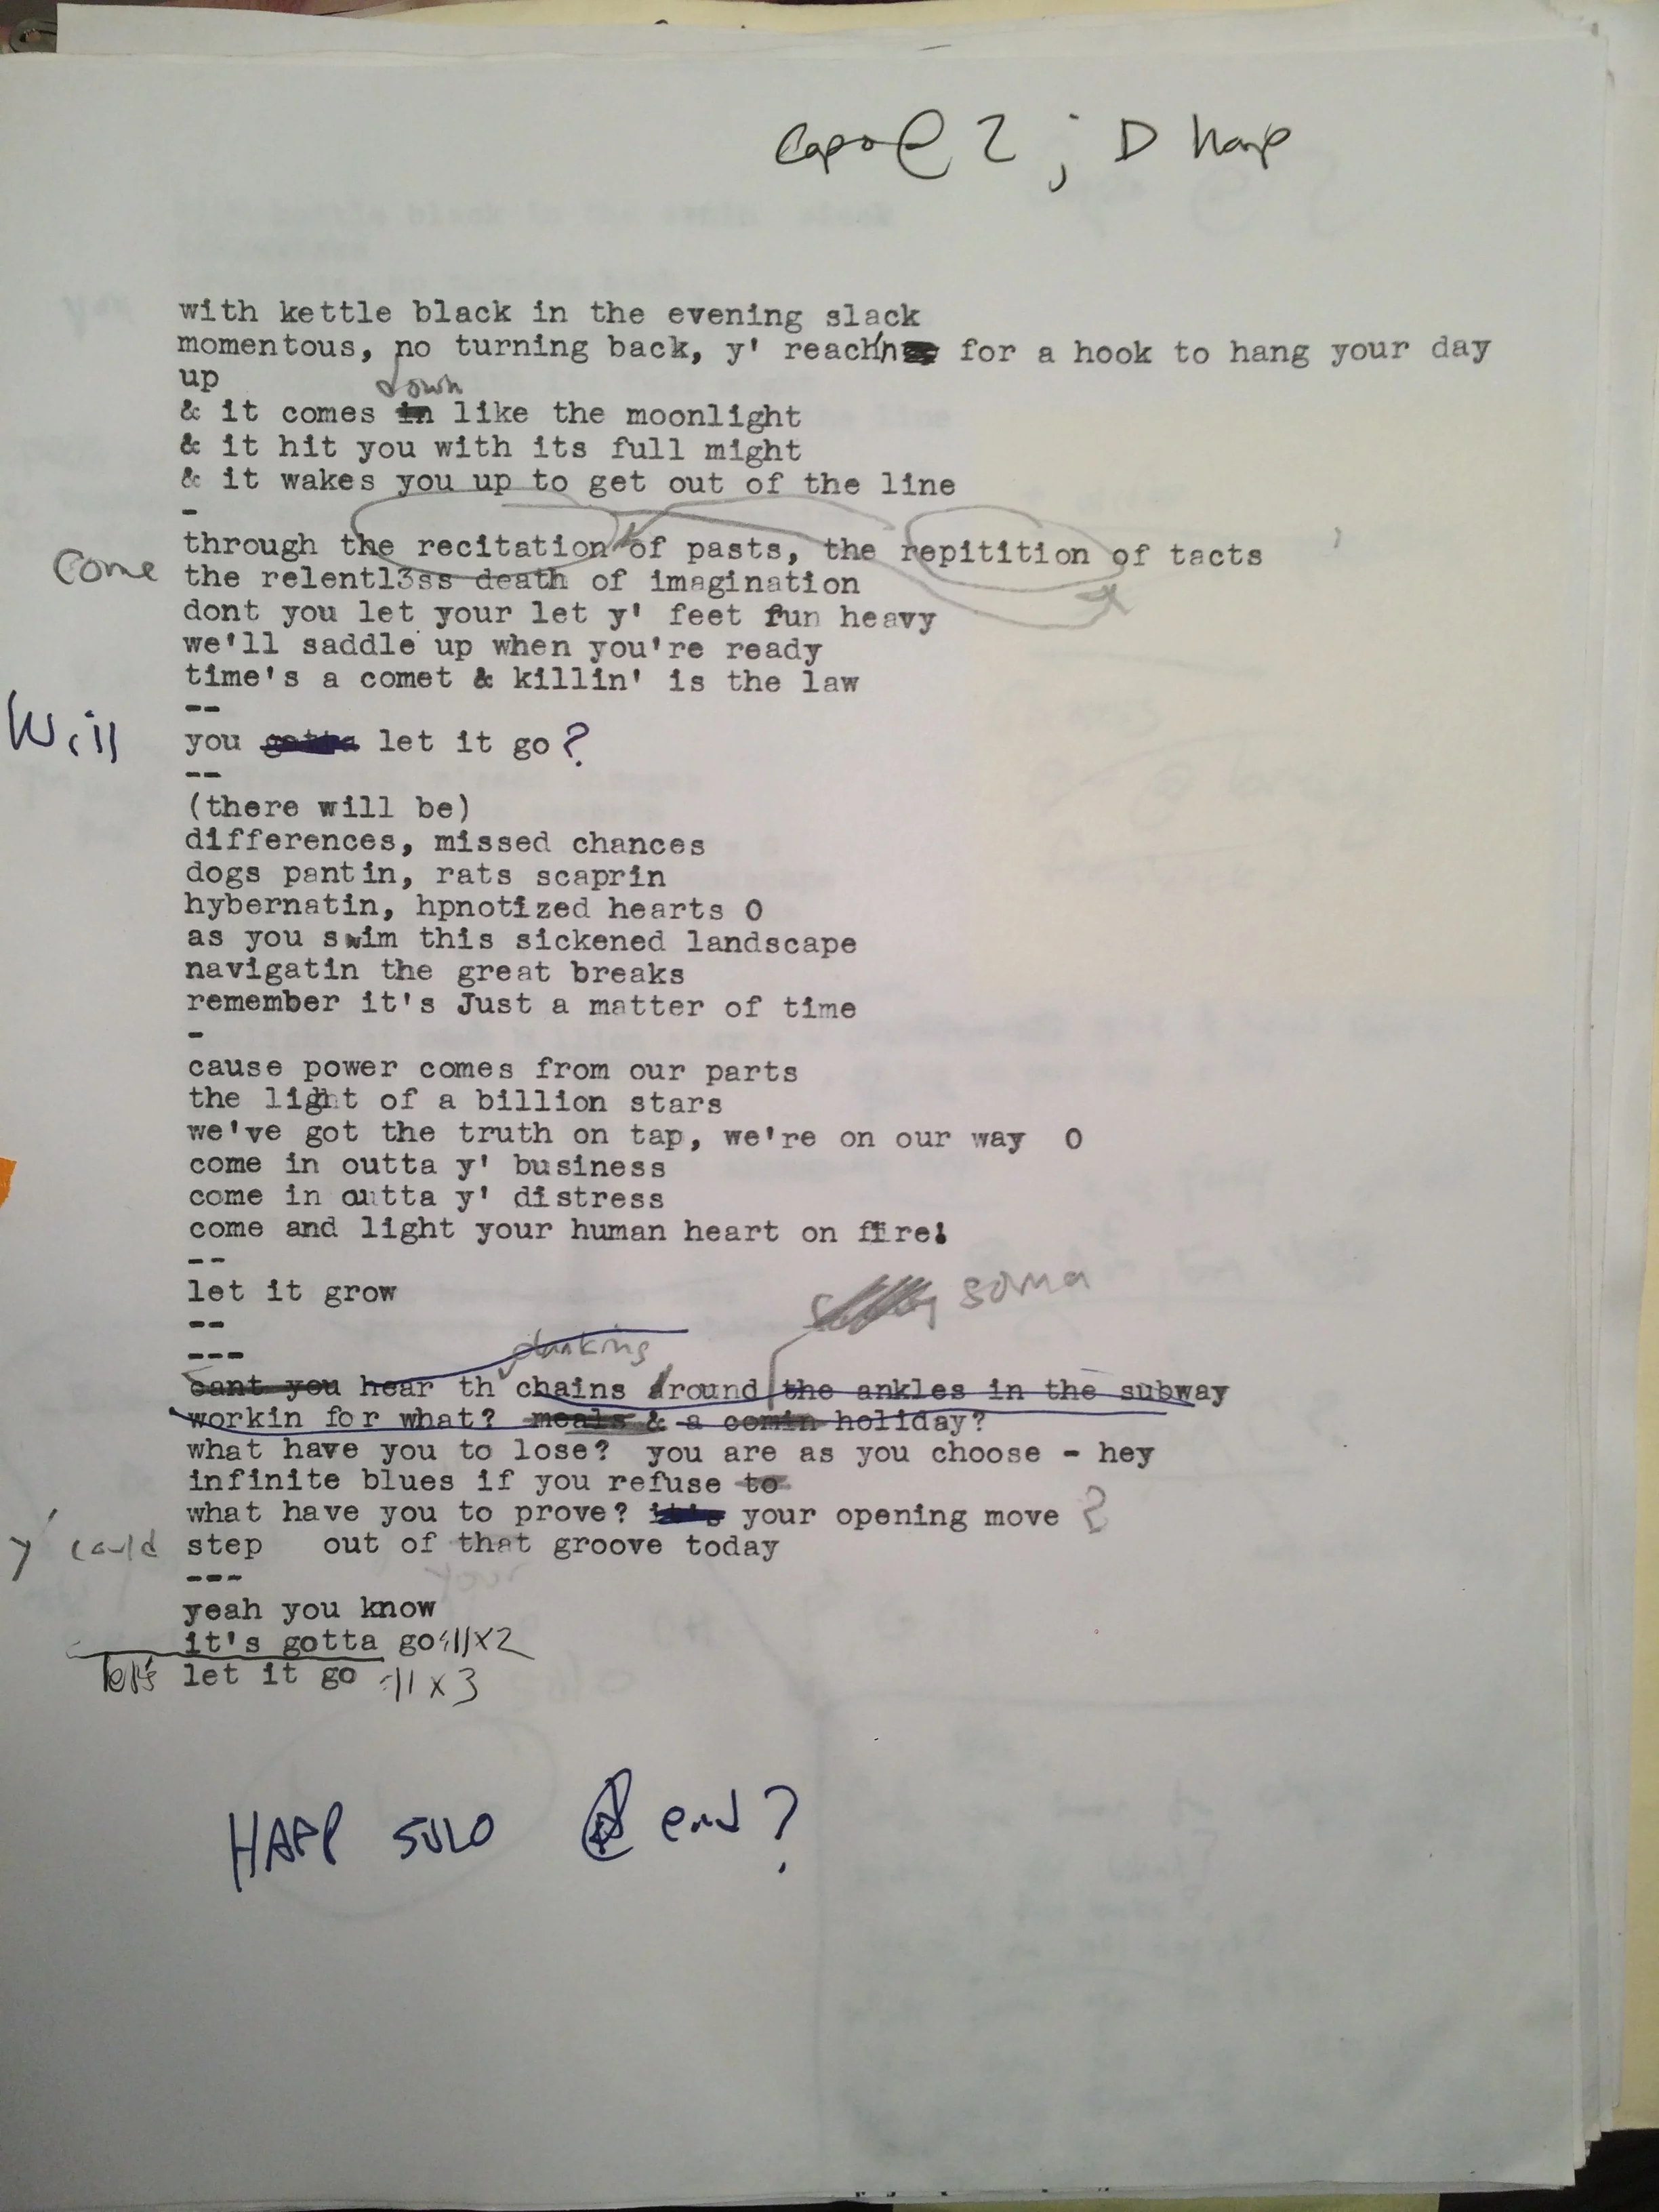 capo @ 2 ; D harp
with kettle black in the evening slack
momentous, no turning back, y' reach'n for a hook to hang your day
up
down
& it comes in like the moonlight
& it hit you with its full might
& it wakes you up to get out of the line
-
through the recitation of pasts, the repitition of tacts
Come the relentl3ss death of imagination
dont you let your let y' feet run heavy
we'll saddle up when you're ready
time's a comet & killin' is the law
--
Will you gotta let it go?
--
(there will be)
differences, missed chances
dogs pantin, rats scaprin
hybernatin, hpnotized hearts 0
as you swim this sickened landscape
navigatin the great breaks
remember it's Just a matter of time
-
cause power comes from our parts
the light of a billion stars
we've got the truth on tap, we're on our way 0
come in outta y' business
come in outta y' distress
come and light your human heart on fire!
--
let it grow
soma
--
---
cant you hear th chains around the ankles in the subway
workin for what? meals & a comin holiday?
what have you to lose? you are as you choose - hey
infinite blues if you refuse to
what have you to prove? it's your opening move ?
y' could step out of that groove today
---
your
yeah you know
it's gotta go :|| x2
let's let it go :|| x 3
HARP SOLO @ end?